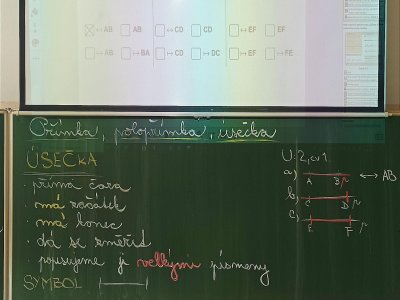 ↔ AB AB ↦ CD CD ↔ EF EF
↦ AB ↦ BA ↦ CD ↦ DC ↦ EF ↦ FE
Přímka, polopřímka, úsečka
ÚSEČKA
· přímá čára
· má začátek
· má konec
· dá se změřit
· popisujeme ji velkými písmeny
SYMBOL |——|
U: 2, cv 1
a) A B p ↔ AB
b) C D p
c) E F p